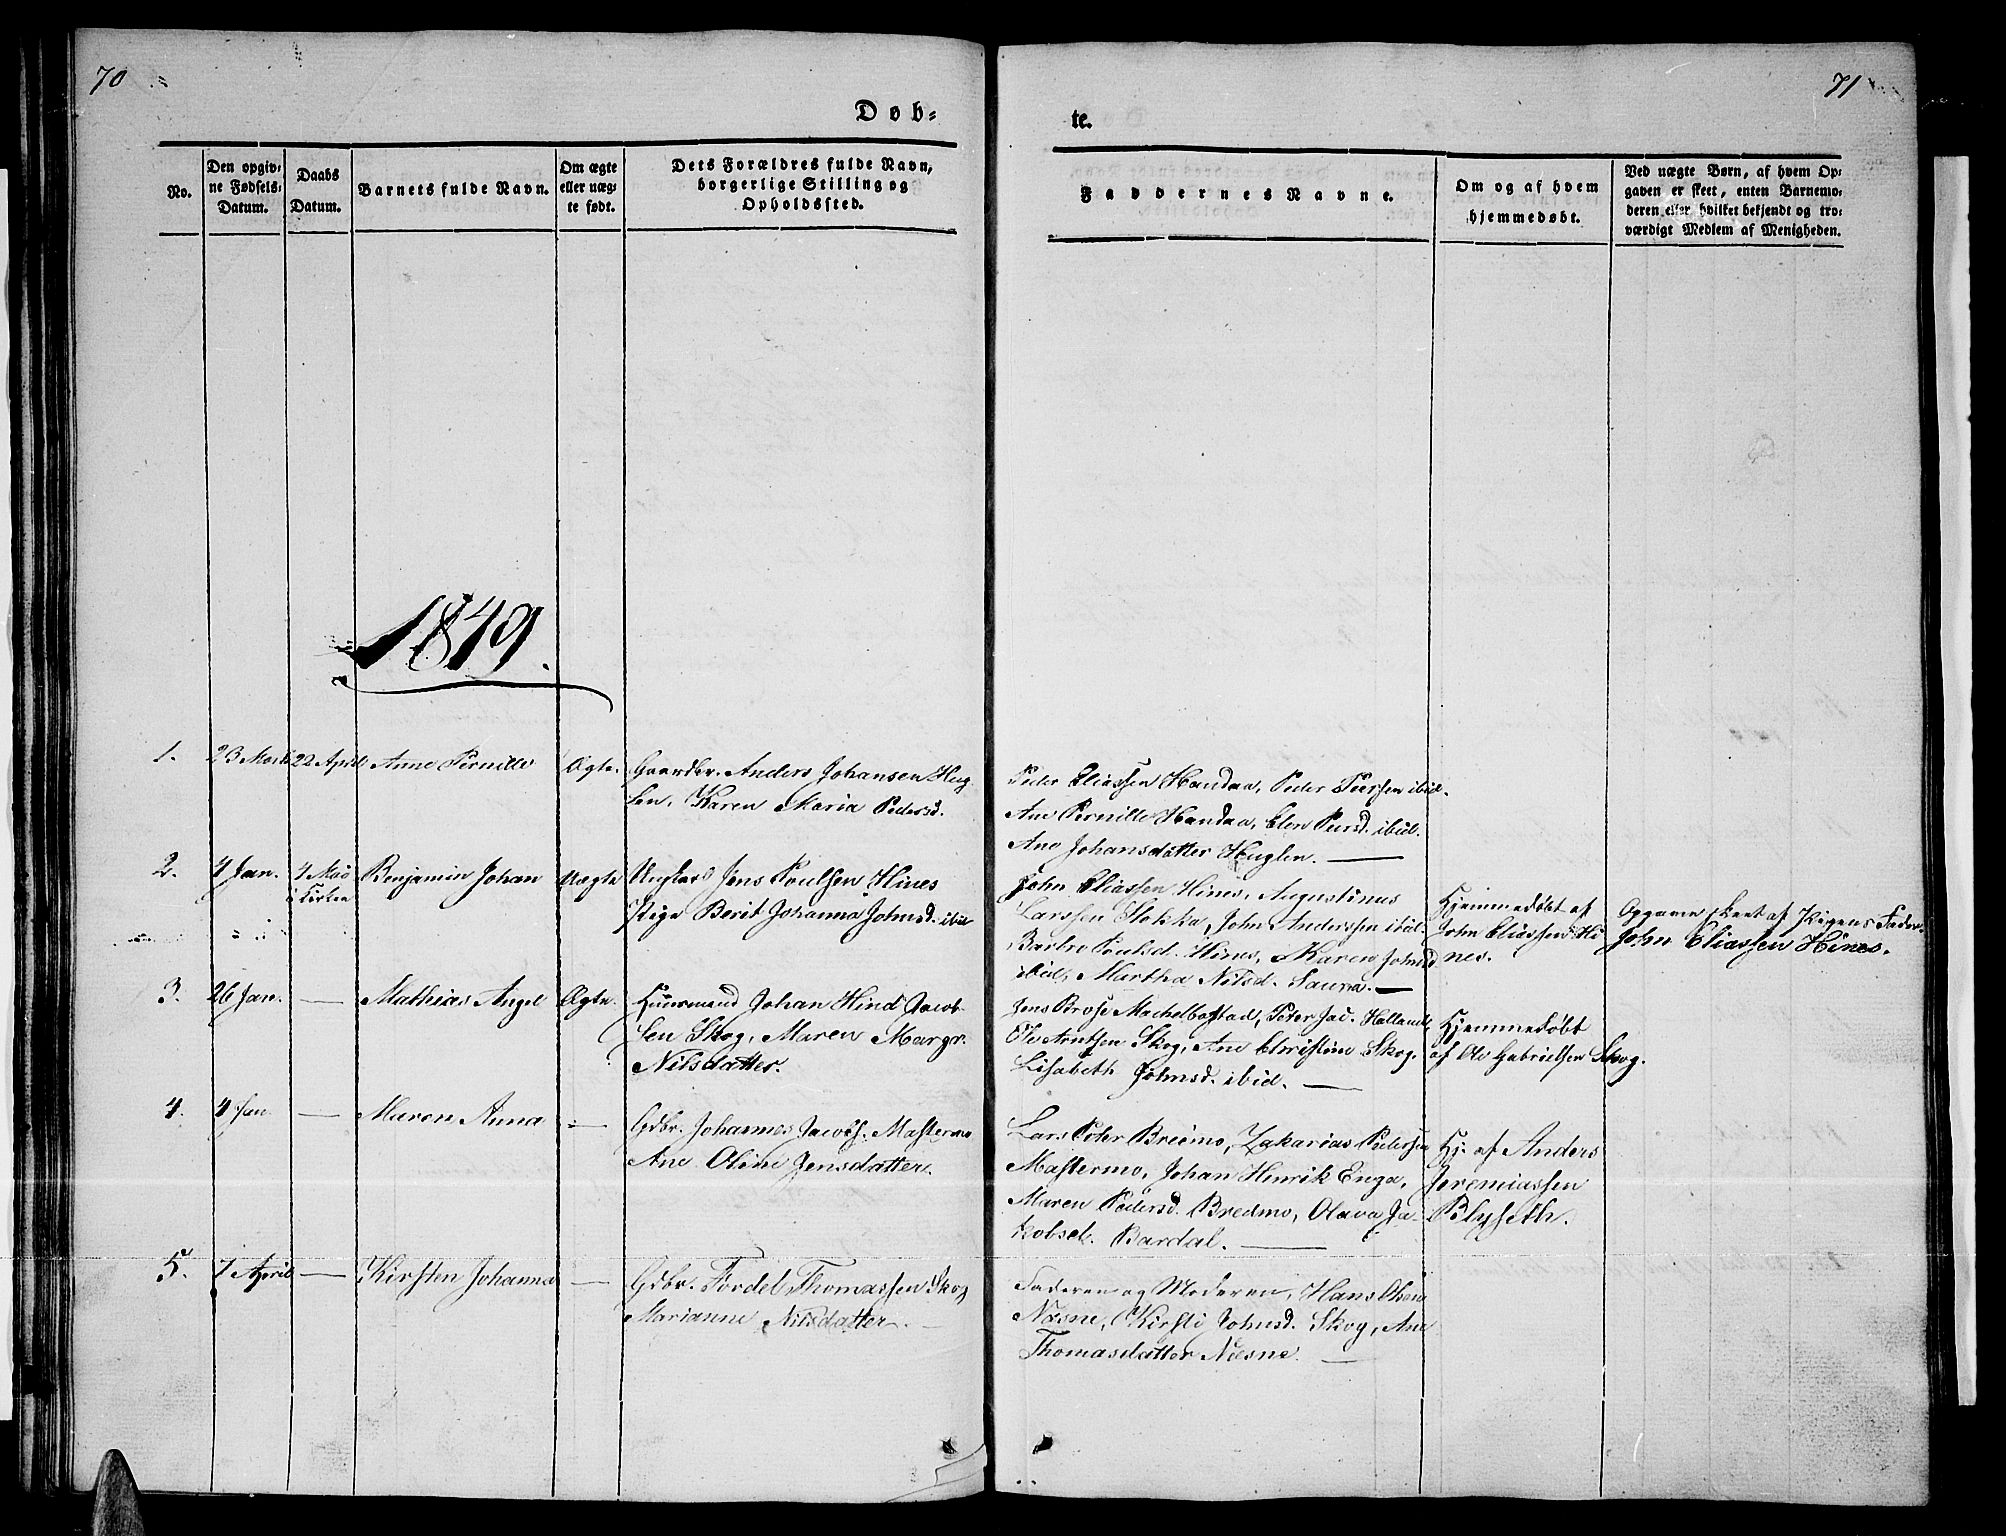 70
71
Døb-
te.
No.
Den opgiv-
ne Fødsels-
Datum.
Daabs
Datum.
Barnets fulde Navn.
Om ægte
eller uæg-
te født.
Dets Forældres fulde Navn,
borgerlige Stilling og
Opholdssted.
Faddernes Navne.
Om og af hvem
hjemmedøbt.
Ved uægte Børn, af hvem Op-
gaven er skeet, enten Barnemo-
deren eller hvilket bekjendt og tro-
værdigt Medlem af Menigheden.
1849.
1.
23 Marts
22 April
Anne Pernille
Ægte.
Gaardbr. Anders Johansen Hug
len, Karen Maria Pedersd.
Peder Eliassen Handaa, Peder Peersen ibid.
Ane Pernille Handaa, Elen Peersd. ibid.
Ane Johansdatter Huglen. —
2.
4 Jan.
4 Mai
i Kirken
Benjamin Johan
Uægte
Ungkarl Jens Poulsen Hines
Pige Berit Johanna Johnsd. ibid
John Eliassen Hines, Augustinus
Larssen Stokka, John Anderssen ibid.
Barbro Poulsd. Hines, Maren Johnsd
ibid, Martha Nilsd. Saura. —
Hjemmedøbt af
John Eliassen Hi
nes.
Opgaven skeet af Pigens Fader
John Eliassen Hines.
3.
26 Jan.
—
Mathias Angel
Ægte.
Huusmand Johan Hind Jacob-
sen Skog, Maren Margr.
Nilsdatter.
Jens Brose Machelbostad, Peter Jac. Halland,
Ole Arntsen Skog, Ane Christine Skog.
Lisabeth Johnsd. ibid. —
Hjemmedøbt
af Ole Gabrielsen Skog.
4.
4 Jan
—
Maren Anna
—
Gdbr. Johannes Jacobs. Mastermo
Ane Oline Jensdatter.
Lars Peter Bredmo, Zakarias Pedersen
Mastermo, Johan Henrik Enga,
Maren Pedersd. Bredmo, Olava Ja-
kobsd. Bardal. —
Hj. af Anders
Jeremiassen
Blyseth.
5.
7 April
—
Kirsten Johanna
—
Gdbr. Fordel Thomassen Skog
Marianne Nilsdatter. —
Faderen og Moderen, Hans Olsen
Næsne, Kirsti Johnsd. Skog, Ane
Thomasdatter Næsne. —